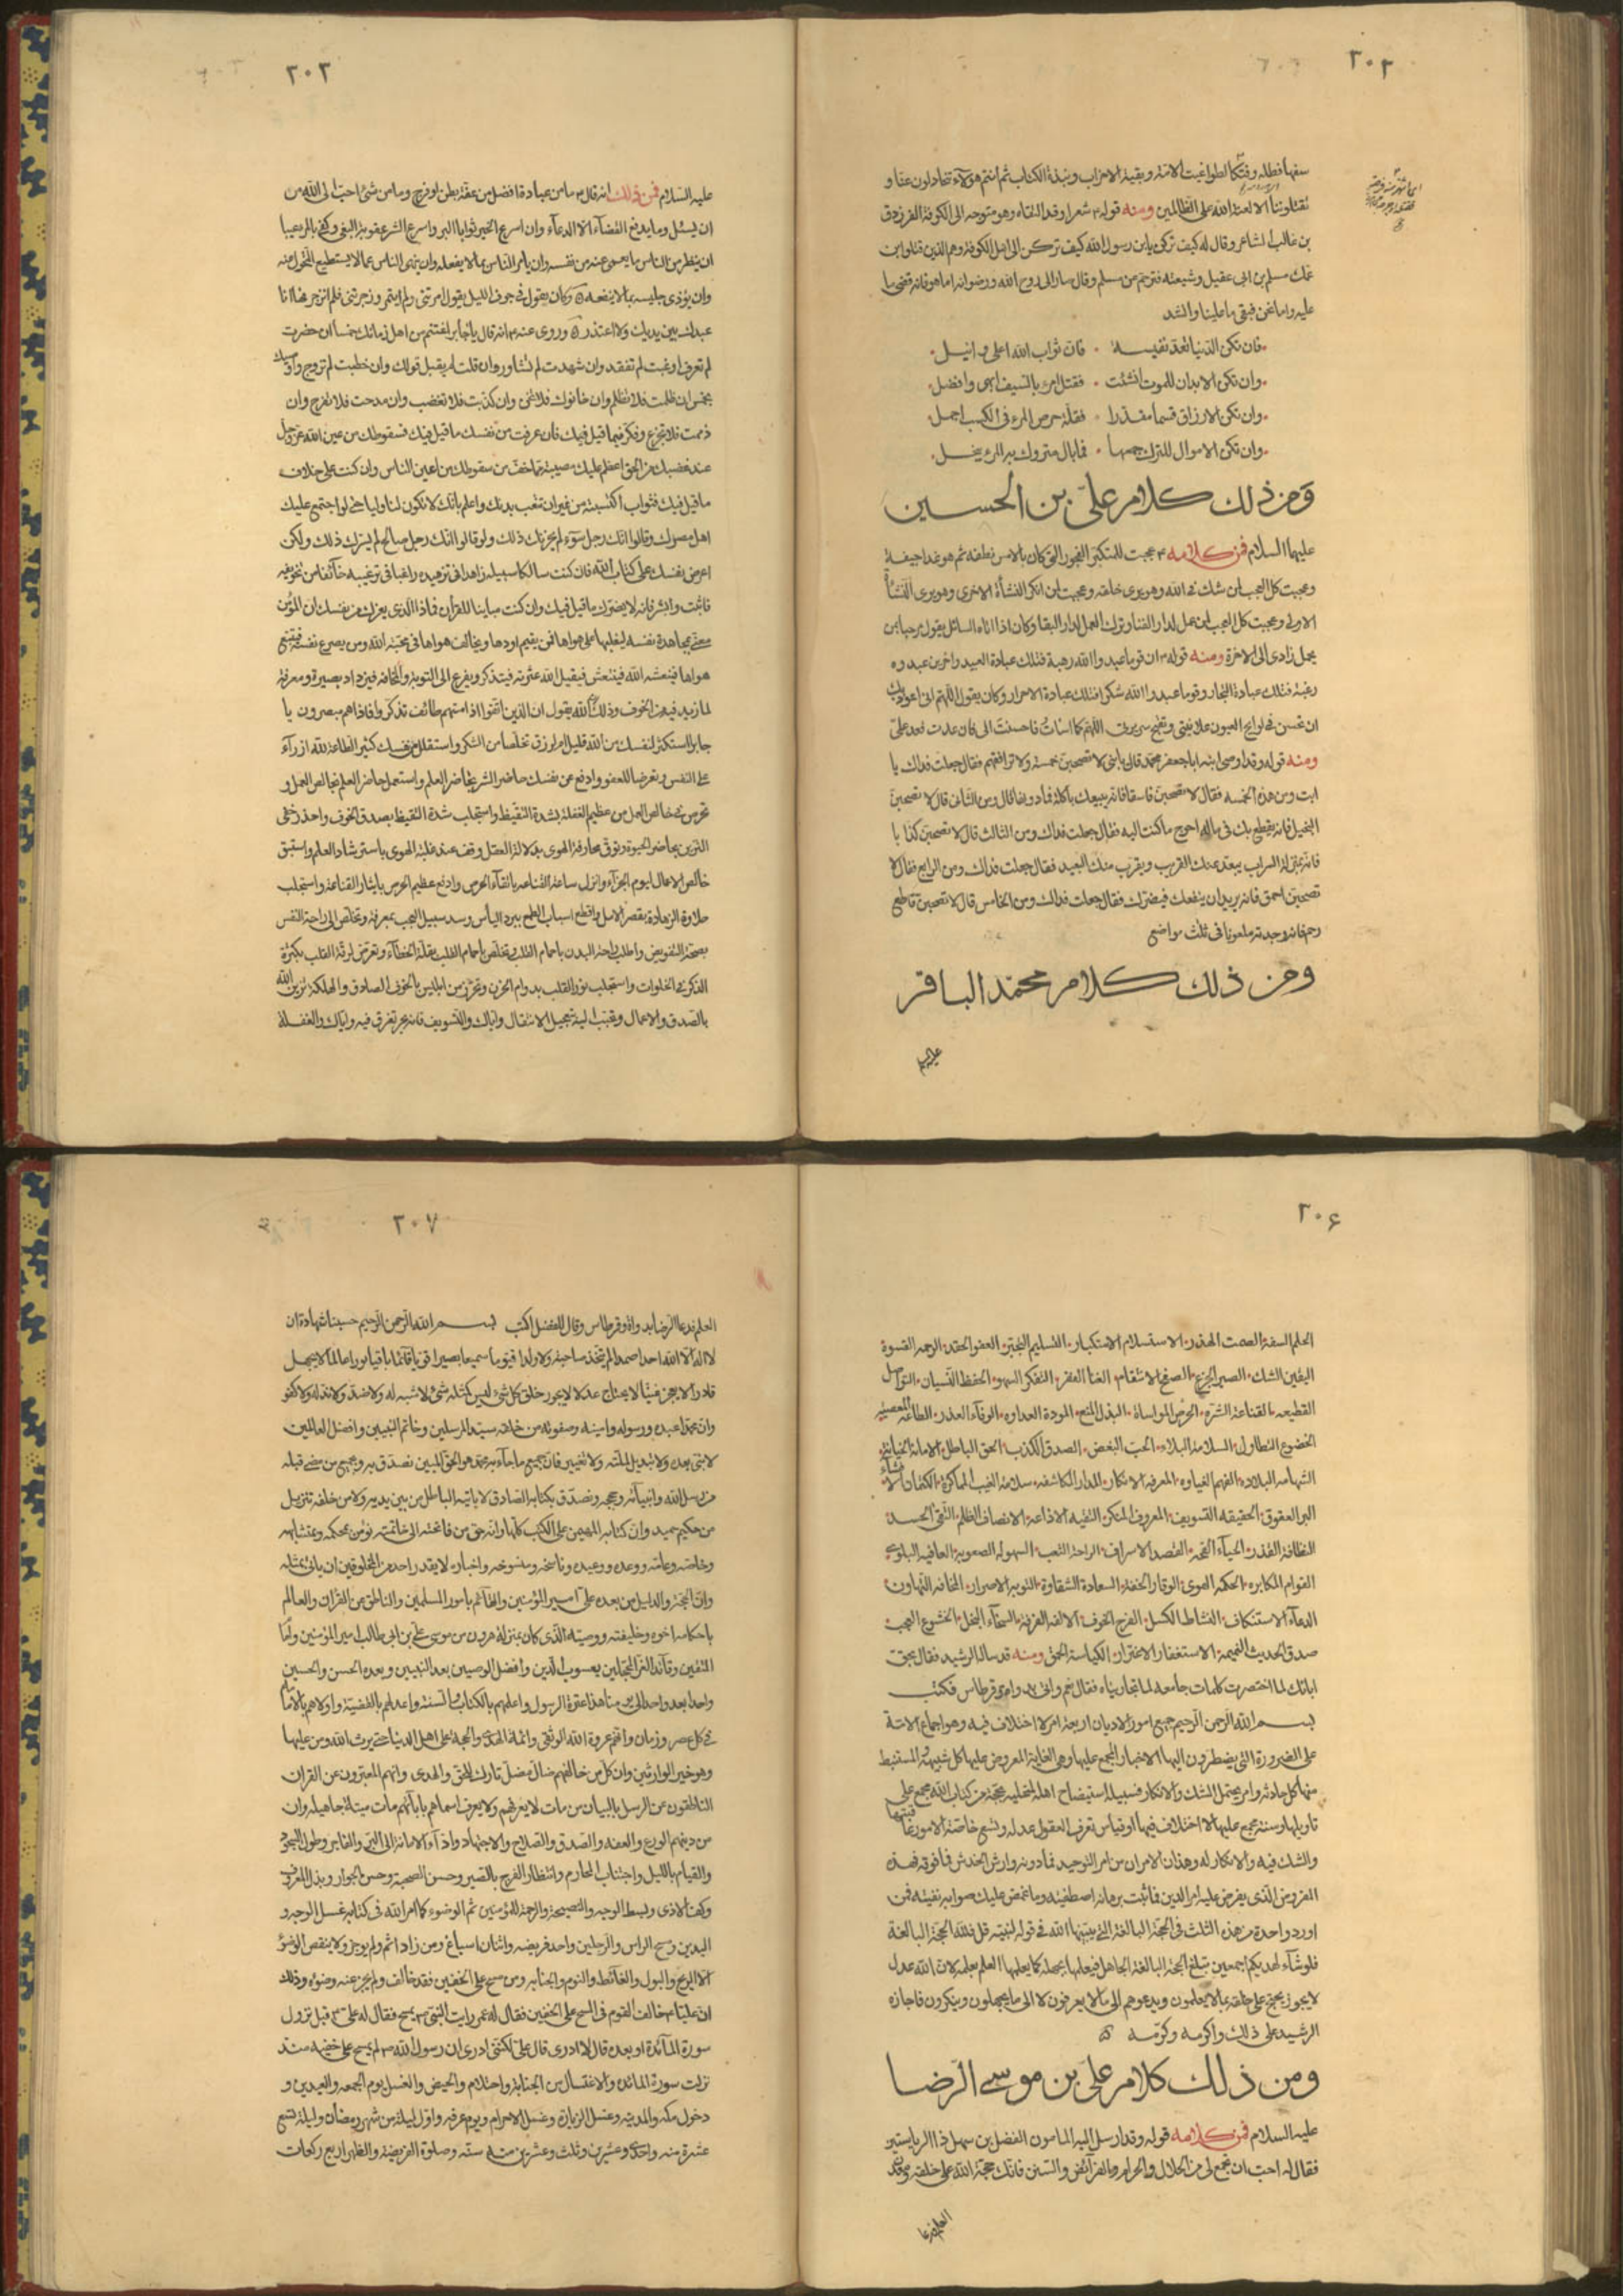 ٢٠٢
سفها فطله وفتكا لطواغيت الامة وبقية الاحزاب ونبذة الكتاب ثم انتم هؤلاء تتخاذلون عنا و
تقتلوننا الا لعنة الله على الظالمين ومنه قوله ۴ شعرا وقد التقاه وهو متوجه الى الكوفة الفرزدق
بن غالب الشاعر وقال له كيف تركن يابن رسول الله كيف تركن الى اهل الكوفة وهم الذين قتلوا ابن
عمك مسلم بن ابي عقيل وشيعته فترحم من مسلم وقال صار الى روح الله ورضوانه اما هو فانه قضى ما
عليه واما نحن فبقي ما علينا وانشد
فان تكن الدنيا تعد نفيسة ٠ فان ثواب الله اعلى وانبل
وان تكن الابدان للموت انشئت ٠ فقتل امرء بالسيف ابهى وافضل
وان تكن الارزاق قسما مقدرا ٠ فقلة حرص المرء في الكسب اجمل
وان تكن الاموال للترك جمعها ٠ فما بال متروك به المرء يبخل
ومن ذلك كلام علي بن الحسين
عليهما السلام فمن كلامه ۴ عجبت للمتكبر الفخور الذي كان بالامس نطفة ثم هو غدا جيفة
وعجبت كل العجب لمن شك في الله وهو يرى خلقه وعجبت لمن انكر النشأة الاخرى وهو يرى النشأة
الاولى وعجبت كل العجب لمن عمل لدار الفنا وترك العمل لدار البقا وكان اذا اتاه السائل يقول مرحبا بمن
يحمل زادي الى الاخرة ومنه قوله ۴ ان قوما عبدوا الله رهبة فتلك عبادة العبيد واخرين عبدوه
رغبة فتلك عبادة التجار وقوما عبدوا الله شكرا فتلك عبادة الاحرار وكان يقول اللهم اني اعوذ بك
ان تحسن في لوايح العيون علانيتي وتقبح سريرتي اللهم كما اسأت فاحسنت الي فان عدت فعد علي
ومنه قوله وقد اوصى ابنه ابا جعفر محمد قال يا بني لا تصحبن خمسة ولا ترافقهم فقال جعلت فداك يا
ابت ومن هذه الخمسة فقال لا تصحبن فاسقا فانه يبيعك باكلة فما دونها قال ومن الثاني قال لا تصحبن
البخيل فانه يقطع بك في ماله احوج ما كنت اليه فقال جعلت فداك ومن الثالث قال لا تصحبن كذابا
فانه بمنزلة السراب يبعد عنك القريب ويقرب منك البعيد فقال جعلت فداك ومن الرابع فقال لا
تصحبن احمق فانه يريد ان ينفعك فيضرك فقال جعلت فداك ومن الخامس قال لا تصحبن قاطع
رحم فانه وجدته ملعونا في ثلث مواضع
ومن ذلك كلام محمد الباقر
عليه
٢٠٣
عليه السلام فمن ذلك انه قال ۴ ما من عبادة افضل من عفة بطن او فرج وما من شئ احب الى الله من
ان يسئل وما يدفع القضاء الا الدعاء وان اسرع الخير ثوابا البر واسرع الشر عقوبة البغي وكفى بالمرء عيبا
ان ينظر من الناس ما يعمى عنه من نفسه وان يامر الناس بما لا يفعله وان ينهى الناس عما لا يستطيع التحول عنه
وان يؤذي جليسه بما لا ينفعه وكان يقول في جوف الليل يقول امرتني ولم ايتمر وزجرتني فلم انزجر فها انا
عبدك بين يديك ولا اعتذر وروي عنه ۴ انه قال يا جابر اغتنم من اهل زمانك خمسا ان حضرت
لم تعرف او غبت لم تفتقد وان شهدت لم تشاور وان قلت لم يقبل قولك وان خطبت لم تزوج واوصيك
بخمس ان ظلمت فلا تظلم وان خانوك فلا تخن وان كذبت فلا تغضب وان مدحت فلا تفرح وان
ذممت فلا تجزع وفكر فيما قيل فيك فان عرفت من نفسك ما قيل فيك فسقوطك من عين الله عز وجل
عند غضبك من الحق اعظم عليك مصيبة مما خفت من سقوطك من اعين الناس وان كنت على خلاف
ما قيل فيك فثواب اكتسبته من غير ان تتعب بدنك واعلم بانك لا تكون لنا وليا حتى لو اجتمع عليك
اهل مصرك وقالوا انك رجل سوء لم يحزنك ذلك ولو قالوا انك رجل صالح لم يسرك ذلك ولكن
اعرض نفسك على كتاب الله فان كنت سالكا سبيله زاهدا في تزهيده راغبا في ترغيبه خائفا من تخويفه
فاثبت وابشر فانه لا يضرك ما قيل فيك وان كنت مباينا للقران فماذا الذي يغرك من نفسك ان المؤمن
معنى بمجاهدة نفسه ليغلبها على هواها فمن يقيم اودها ويخالف هواها في محبة الله ومن يصرع نفسه فيتبع
هواها فينعشه الله فينتعش فيقيل الله عثرته فيتذكر ويفزع الى التوبة والمخافة فيزداد بصيرة ومعرفة
لما زيد فيه من الخوف وذلك بان الله يقول ان الذين اتقوا اذا مسهم طائف تذكروا فاذا هم مبصرون يا
جابر استكثر لنفسك من الله قليل الرزق تخلصا من الشكر واستقلل من نفسك كثير الطاعة لله ازراء
على النفس وتعرضا للعفو وادفع عن نفسك حاضر الشر بحاضر العلم واستعمل حاضر العلم بخالص العمل و
تحرص في خالص العمل من عظيم الغفلة بشدة التيقظ واستجلب شدة التيقظ بصدق الخوف واحذر خفي
التزين بحاضر الحيوة وتوق مجازفة الهوى بدلالة العقل وقف عند غلبة الهوى باسترشاد العلم واستبق
خالص الاعمال ليوم الجزاء وانزل ساحة القناعة باتقاء الحرص وادفع عظيم الحرص بايثار القناعة واستجلب
حلاوة الزهادة بقصر الامل واقطع اسباب الطمع ببرد اليأس وسد سبيل العجب بمعرفة وتخلص الى راحة النفس
بصحة التفويض واطلب راحة البدن باجمام القلب وتخلص باجمام القلب بقلة الخطاء وتعرض لرقة القلب بكثرة
الذكر في الخلوات واستجلب نور القلب بدوام الحزن وتحرز من ابليس بالخوف الصادق
بالصدق والاعمال وتحبب اليه بتعجيل الانتقال واياك والتسويف فانه بحر يغرق فيه واياك والغفلة
٢٠۶
الحلم السفه الصمت الهذر الاستسلام الاستكبار التسليم التجبر العفو الحقد الرحمة القسوة
اليقين الشك الصبر الجزع الصفح الانتقام الغنا الفقر التفكر السهو الحفظ النسيان التواصل
القطيعه القناعة الشره الحرص المواساة البذل المنع المودة العداوه الوفاء الغدر الطاعة المعصيه
الخضوع التطاول السلامة البلاء الحب البغض الصدق الكذب الحق الباطل الامانة الخيانة
الشهامه البلاده الفهم الغباوه المعرفة الانكار المدارا المكاشفه سلامة الغيب المماكرة الكتمان والافشاء
البر العقوق الحقيقه التسويف المعروف المنكر التقيه الاذاعة الانصاف الظلم التقى الحسد
النظافة القذر الحياء القحة القصد الاسراف الراحة التعب السهولة الصعوبة العافيه البلوى
القوام المكابره الحكمة الهوى الوقار الخفة السعادة الشقاوة التوبة الاصرار المخافه التهاون
الدعاء الاستنكاف النشاط الكسل الفرح الخوف الالفه الفرقه السخاء البخل الخشوع العجب
صدق الحديث النميمه الاستغفار الاغترار الكياسة الحمق ومنه قد ساله الرشيد فقال بحق
ابائك لما اختصرت كلمات جامعه لما تجاريناه فقال نعم واتى بدواة وقرطاس فكتب
بسم الله الرحمن الرحيم جميع امور الاديان اربعة امر لا اختلاف فيه وهو اجماع الامة
على الضرورة التي يضطرون اليها الاخبار المجمع عليها وهي الغاية المعروض عليها كل شبهة والمستنبط
منها كل حادثة وامر يحتمل الشك والانكار فسبيله استيضاح اهله لمنتحليه بحجة من كتاب الله مجمع على
تاويلها وسنة مجمع عليها لا اختلاف فيها او قياس تعرف العقول عدله وتسع خاصة الامة وعامتها
والشك فيه والانكار له وهذان الامران من امر التوحيد فما دونه وارش الخدش فما فوقه فهذا
المعروض الذي يعرض عليه امر الدين فما ثبت برهانه اصطفيته وما غمض عليك صوابه نفيته فمن
اورد واحدة من هذه الثلث فهي الحجة البالغة التي بينها الله في قوله لنبيه قل فلله الحجة البالغة
فلو شاء لهديكم اجمعين تبلغ الحجة البالغة الجاهل فيعلمها بجهله كما يعلمها العالم بعلمه لان الله عدل
لا يجوز يحتج على خلقه بما لا يعلمون ويدعوهم الى ما لا يعرفون لا الى ما يجهلون وينكرون فاجازه
الرشيد على ذلك واكرمه وكرمه
ومن ذلك كلام علي بن موسى الرضا
عليه السلام فمن كلامه قوله وقد ارسل اليه المامون الفضل بن سهل ذا الرياستين
فقال له احب ان تجمع لي من الحلال والحرام والفرائض والسنن فانك حجة الله على خلقه ومعدن
العلم فدعا
٢٠٧
العلم فدعا الرضا بدواة وقرطاس وقال للفضل اكتب بسم الله الرحمن الرحيم حسبنا شهادة ان
لا اله الا الله احدا صمدا لم يتخذ صاحبة ولا ولدا قيوما سميعا بصيرا قويا قائما باقيا نورا عالما لا يجهل
قادرا لا يعجز غنيا لا يحتاج عدلا لا يجور خلق كل شئ ليس كمثله شئ لا شبه له ولا ضد ولا ند له ولا كفو
وان محمدا عبده ورسوله وامينه وصفوته من خلقه سيد المرسلين وخاتم النبيين وافضل العالمين
لا نبي بعده ولا تبديل لملته ولا تغيير فان جميع ما جاء به محمد هو الحق المبين نصدق به وبجميع من مضى قبله
من رسل الله وانبيائه وحججه ونصدق بكتابه الصادق لا ياتيه الباطل من بين يديه ولا من خلفه تنزيل
من حكيم حميد وان كتابه المهيمن على الكتب كلها وانه حق من فاتحته الى خاتمته نؤمن بمحكمه ومتشابهه
وخاصه وعامه ووعده ووعيده وناسخه ومنسوخه واخباره لا يقدر احد من المخلوقين ان ياتي بمثله
وان الحجة والدليل من بعده علي امير المؤمنين والقائم بامور المسلمين والناطق عن القران والعالم
باحكامه اخوه وخليفته ووصيه الذي كان بمنزلة هرون من موسى علي بن ابي طالب امير المؤمنين وامام
المتقين وقائد الغر المحجلين يعسوب الدين وافضل الوصيين بعد النبيين وبعده الحسن والحسين
واحدا بعد واحد الى يومنا هذا عترة الرسول واعلمهم بالكتاب والسنة واعدلهم بالقضية واولاهم بالامامة
في كل عصر وزمان وانهم عروة الله الوثقى وائمة الهدى والحجة على اهل الدنيا حتى يرث الله ومن عليها
وهو خير الوارثين وان كل من خالفهم ضال مضل تارك للحق والهدى وانهم المعبرون عن القران
الناطقون عن الرسل بالبيان من مات لا يعرفهم ولا يعرف اسماهم بابائهم مات ميتة جاهلية وان
من دينهم الورع والعفة والصدق والصلاح والاجتهاد واداء الامانة الى البر والفاجر وطول السجود
والقيام بالليل واجتناب المحارم وانتظار الفرج بالصبر وحسن الصحبة وحسن الجوار وبذل المعروف
وكف الاذى وبسط الوجه والنصيحة والرحمة للمؤمنين ثم الوضوء كما امر الله في كتابه غسل الوجه و
اليدين ومسح الراس والرجلين واحد فريضه واثنان اسباغ ومن زاد اثم ولم يوجر ولا ينقض الوضوء
الا الريح والبول والغائط والنوم والجنابه ومن مسح على الخفين فقد خالف ولم يجز عنه وضوءه وذلك
ان عليا ۴ خالف القوم في المسح على الخفين فقال له عمر رايت النبي ص يمسح فقال له علي ۴ قبل نزول
سورة المائدة او بعده قال لا ادري قال علي لكنني ادري ان رسول الله ص لم يمسح على خفيه منذ
نزلت سورة المائده والاغتسال من الجنابة واحتلام والحيض والغسل يوم الجمعه والعيدين و
دخول مكه والمدينه وغسل الزيارة وغسل الاحرام ويوم عرفه واول ليلة من شهر رمضان وليلة تسع
عشرة منه واحدى وعشرين وثلث وعشرين منه سنة وصلوة الفريضة والظهر اربع ركعات